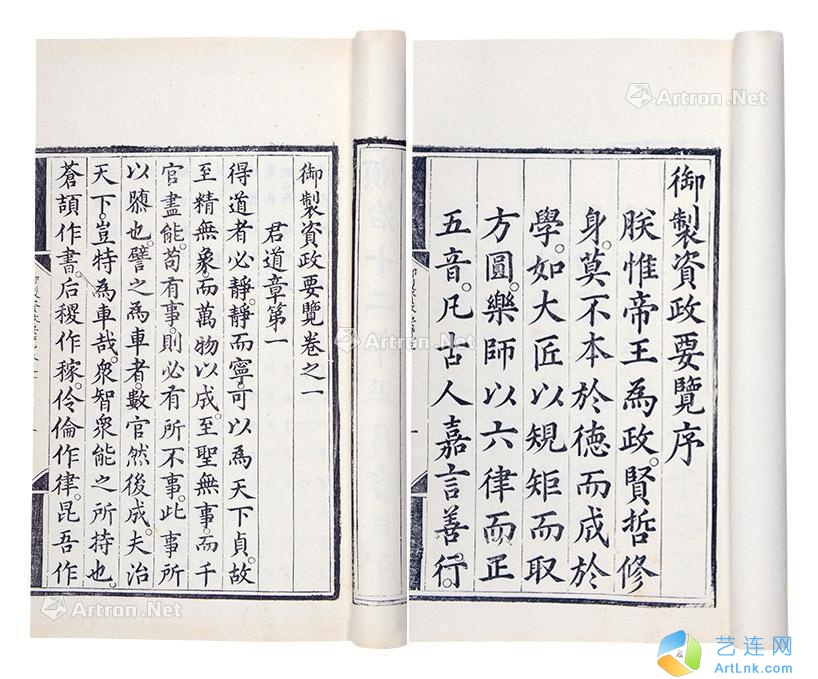 御製資政要覽序
朕惟帝王為政。賢哲修
身。莫不本於德而成於
學。如大匠以規矩而取
方圓。樂師以六律而正
五音。凡古人嘉言善行。
御製資政要覽卷之一
君道章第一
得道者必靜。靜而寧。可以為天下貞。故
至精無象。而萬物以成。至聖無事。而千
官盡能。苟有事。則必有所不事。此事所
以隳也。譬之為車者。數官然後成。夫治
天下。豈特為車哉。衆智衆能之所持也。
蒼頡作書。后稷作稼。伶倫作律。昆吾作
Artron.Net
Artron.Net
Artron.Net
艺连网
ArtLnk.com